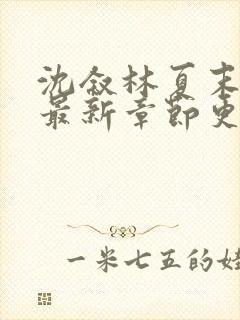 沈叙林夏末
最新章节更
一米七五的娃